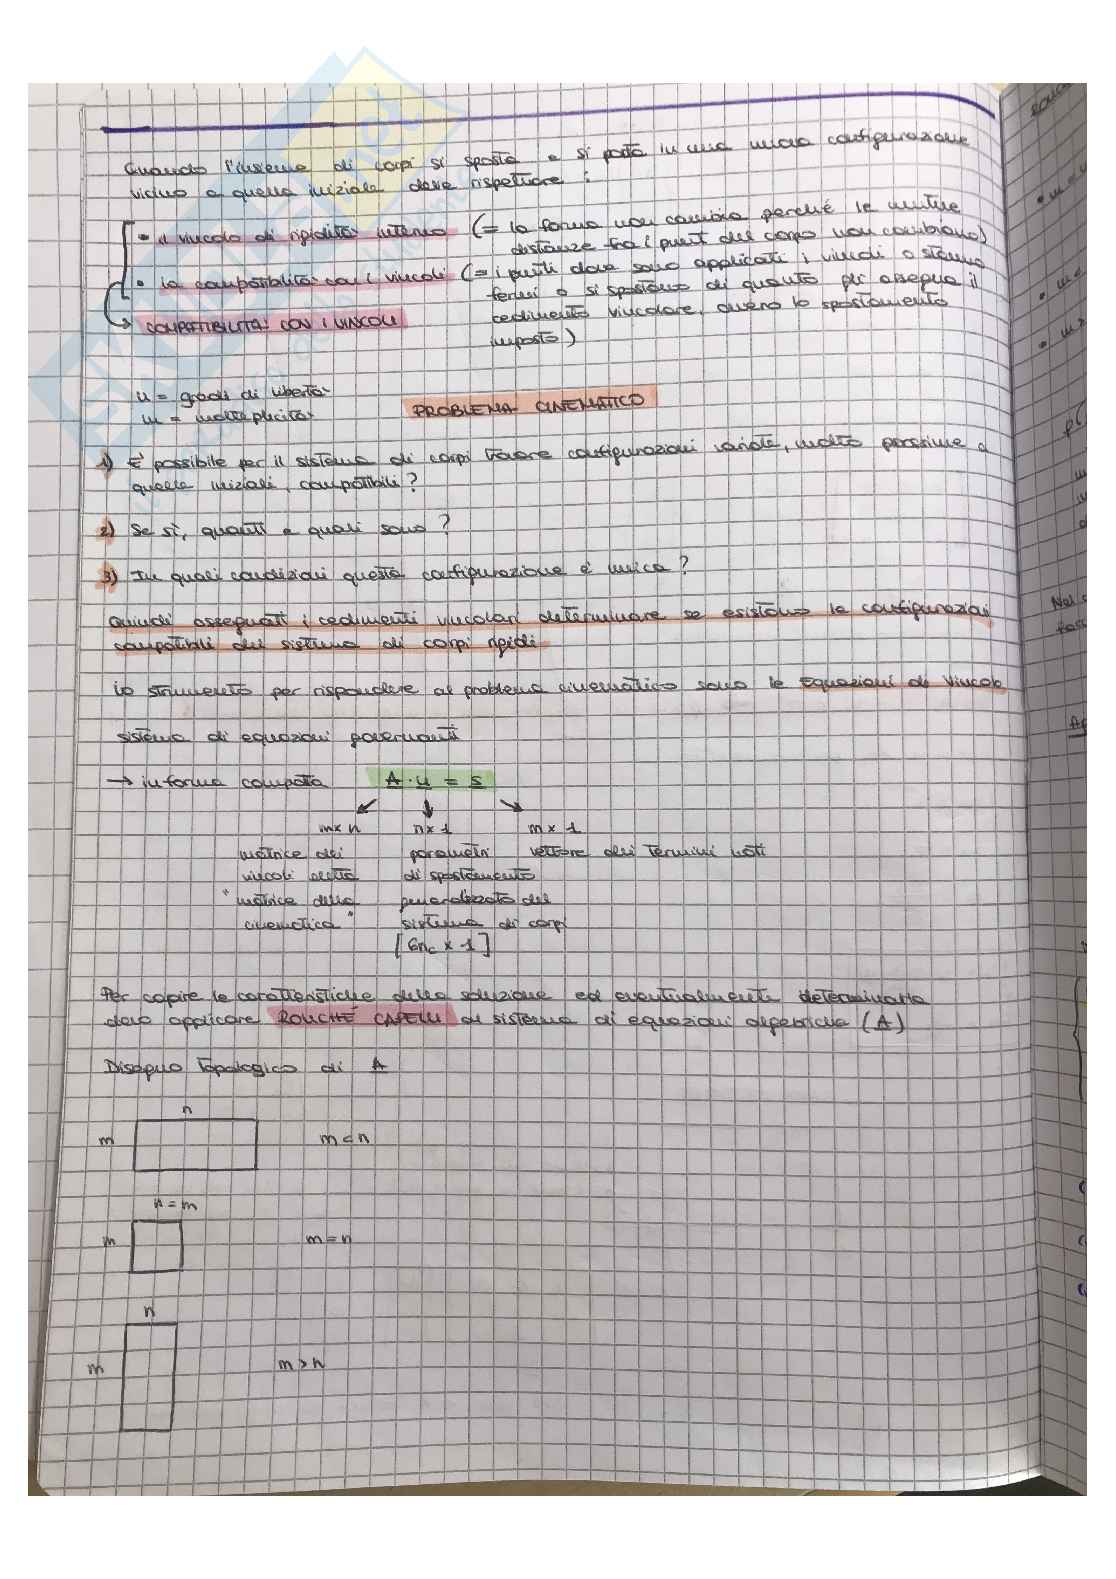 Quando l'insieme di corpi si sposta e si porta in una nuova configurazione
vicino a quella iniziale deve rispettare :
• il vincolo di rigidità interno (= la forma non cambia perché le mutue
distanze fra i punti del corpo non cambiano)
• la compatibilità con i vincoli (= i punti dove sono applicati i vincoli o stanno
fermi o si spostano di quanto gli assegna il
cedimento vincolare, ovvero lo spostamento
imposto)
→ COMPATIBILITA' CON I VINCOLI
n = gradi di libertà
m = molteplicità
PROBLEMA CINEMATICO
1) È possibile per il sistema di corpi trovare configurazioni variate, molto prossime a
quelle iniziali, compatibili?
2) Se sì, quanti e quali sono?
3) In quali condizioni questa configurazione è unica?
Quindi assegnati i cedimenti vincolari determinare se esistono le configurazioni
compatibili del sistema di corpi rigidi
Lo strumento per rispondere al problema cinematico sono le Equazioni di Vincolo
sistema di equazioni governanti
→ in forma compatta A · u = s
m×n n×1 m×1
matrice dei parametri vettore dei termini noti
vincoli detta di spostamento
"matrice della generalizzato del
cinematica" sistema di corpi
[6nc × 1]
Per capire le caratteristiche della soluzione ed eventualmente determinarla
devo applicare ROUCHÉ CAPELLI al sistema di equazioni algebriche (A)
Disegno Topologico di A
n
m m<n
n=m
m m=n
n
m m>n